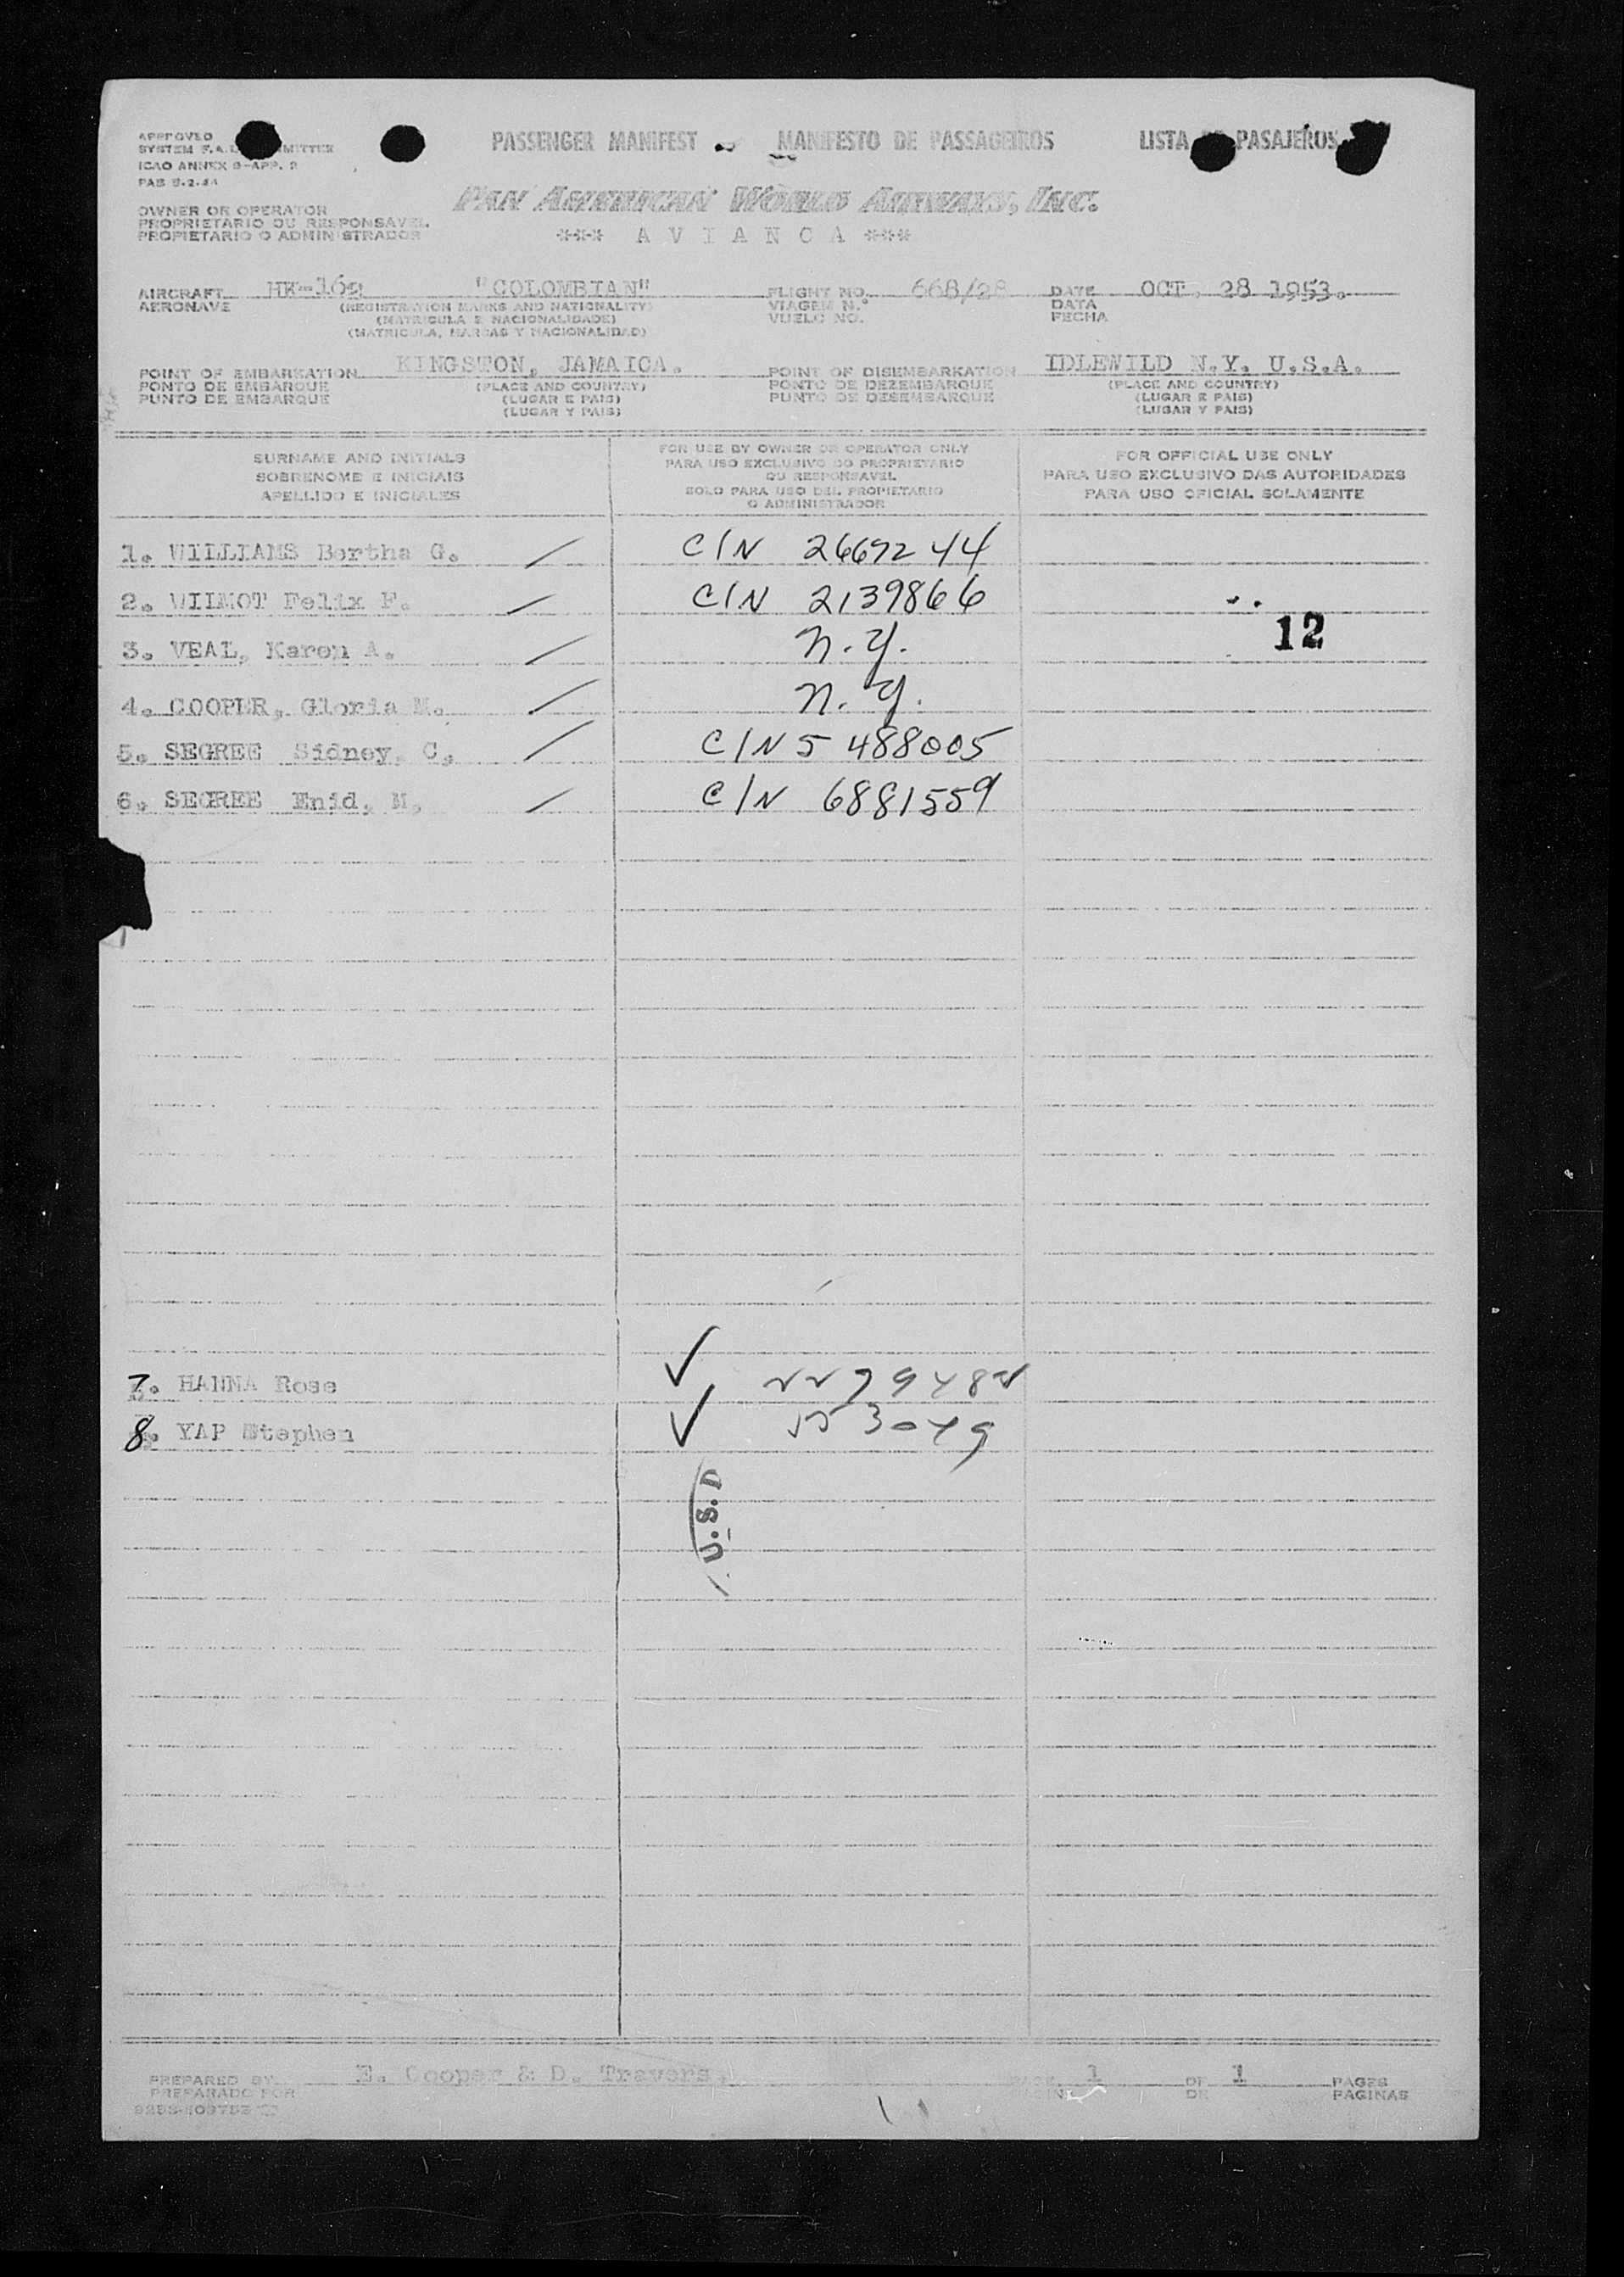 APPROVED
SYSTEM F.A.L. MITTEE
ICAO ANNEX 9-APP. 2
PASSENGER MANIFEST - MANIFESTO DE PASSAGEIROS LISTA DE PASAJEROS
PAN AMERICAN WORLD AIRWAYS, INC.
*** A V I A N C A ***
OWNER OR OPERATOR
PROPRIETARIO OU RESPONSAVEL
PROPIETARIO O ADMINISTRADOR
AIRCRAFT HK-162 "COLOMBIAN" FLIGHT NO. 668/28 DATE OCT. 28 1953.
AERONAVE (REGISTRATION MARKS AND NATIONALITY) VIAGEM N.° DATA
(MATRICULA E NACIONALIDADE) VUELO NO. FECHA
(MATRICULA, MARCAS Y NACIONALIDAD)
POINT OF EMBARKATION KINGSTON, JAMAICA. POINT OF DISEMBARKATION IDLEWILD N.Y. U.S.A.
PONTO DE EMBARQUE (PLACE AND COUNTRY) PONTO DE DEZEMBARQUE (PLACE AND COUNTRY)
PUNTO DE EMBARQUE (LUGAR E PAIS) PUNTO DE DESEMBARQUE (LUGAR E PAIS)
(LUGAR Y PAIS) (LUGAR Y PAIS)
SURNAME AND INITIALS
SOBRENOME E INICIAIS
APELLIDO E INICIALES
FOR USE BY OWNER OR OPERATOR ONLY
PARA USO EXCLUSIVO DO PROPRIETARIO
OU RESPONSAVEL
SOLO PARA USO DEL PROPIETARIO
O ADMINISTRADOR
FOR OFFICIAL USE ONLY
PARA USO EXCLUSIVO DAS AUTORIDADES
PARA USO OFICIAL SOLAMENTE
1. WILLIAMS Bertha G. / C/N 2669244
2. WILMOT Felix F. / C/N 2139866
12
3. VEAL, Karen A. / N.Y.
4. COOPER, Gloria M. / N.Y.
5. SEGREE Sidney, C. / C/N 5488005
6. SEGREE Enid, M. / C/N 6881559
7. HANNA Rose ✓
8. YAP Stephen ✓
U.S.D
PREPARED BY E. Cooper & D. Travers. PAGE 1 OF 1 PAGES
PREPARADO POR DE PAGINAS